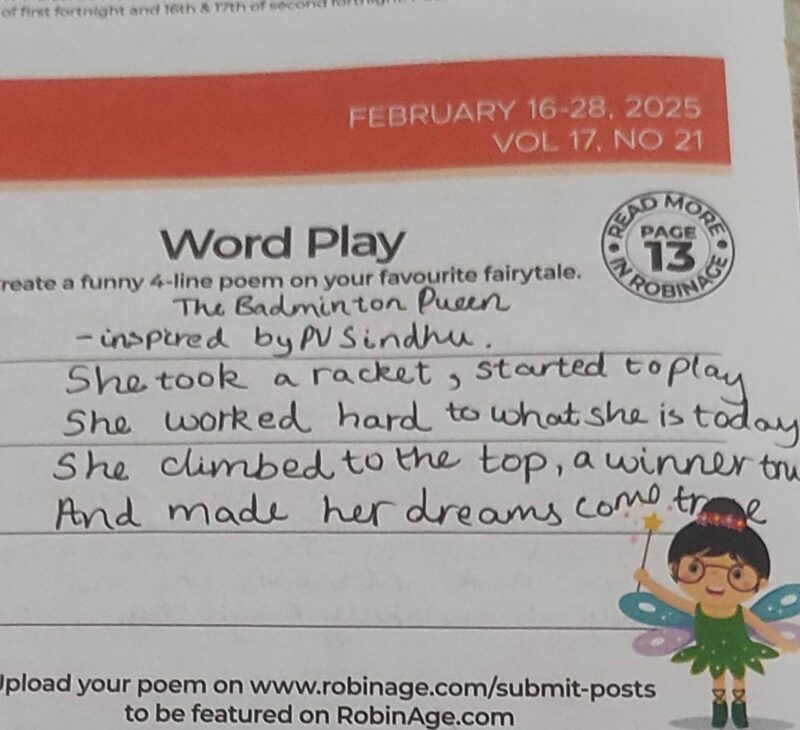 of first fortnight and 16th & 17th of second fortnight.
FEBRUARY 16-28, 2025
VOL 17, NO 21
READ MORE
PAGE
13
IN ROBINAGE
Word Play
reate a funny 4-line poem on your favourite fairytale.
The Badminton Pueen
- inspired by PV Sindhu.
She took a racket, started to play
She worked hard to what she is today
She climbed to the top, a winner tru
And made her dreams come true
Upload your poem on www.robinage.com/submit-posts
to be featured on RobinAge.com